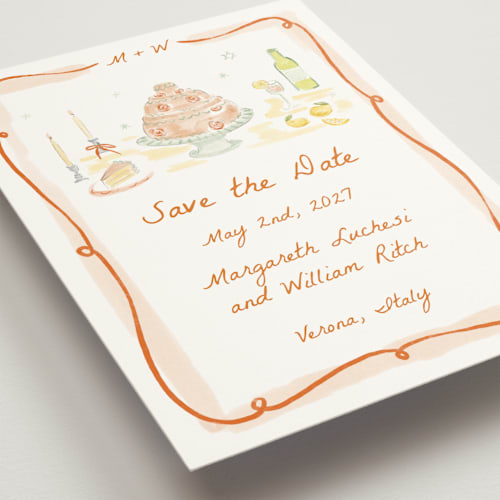 M + W
Save the Date
May 2nd, 2027
Margareth Luchesi
and William Ritch
Verona, Italy